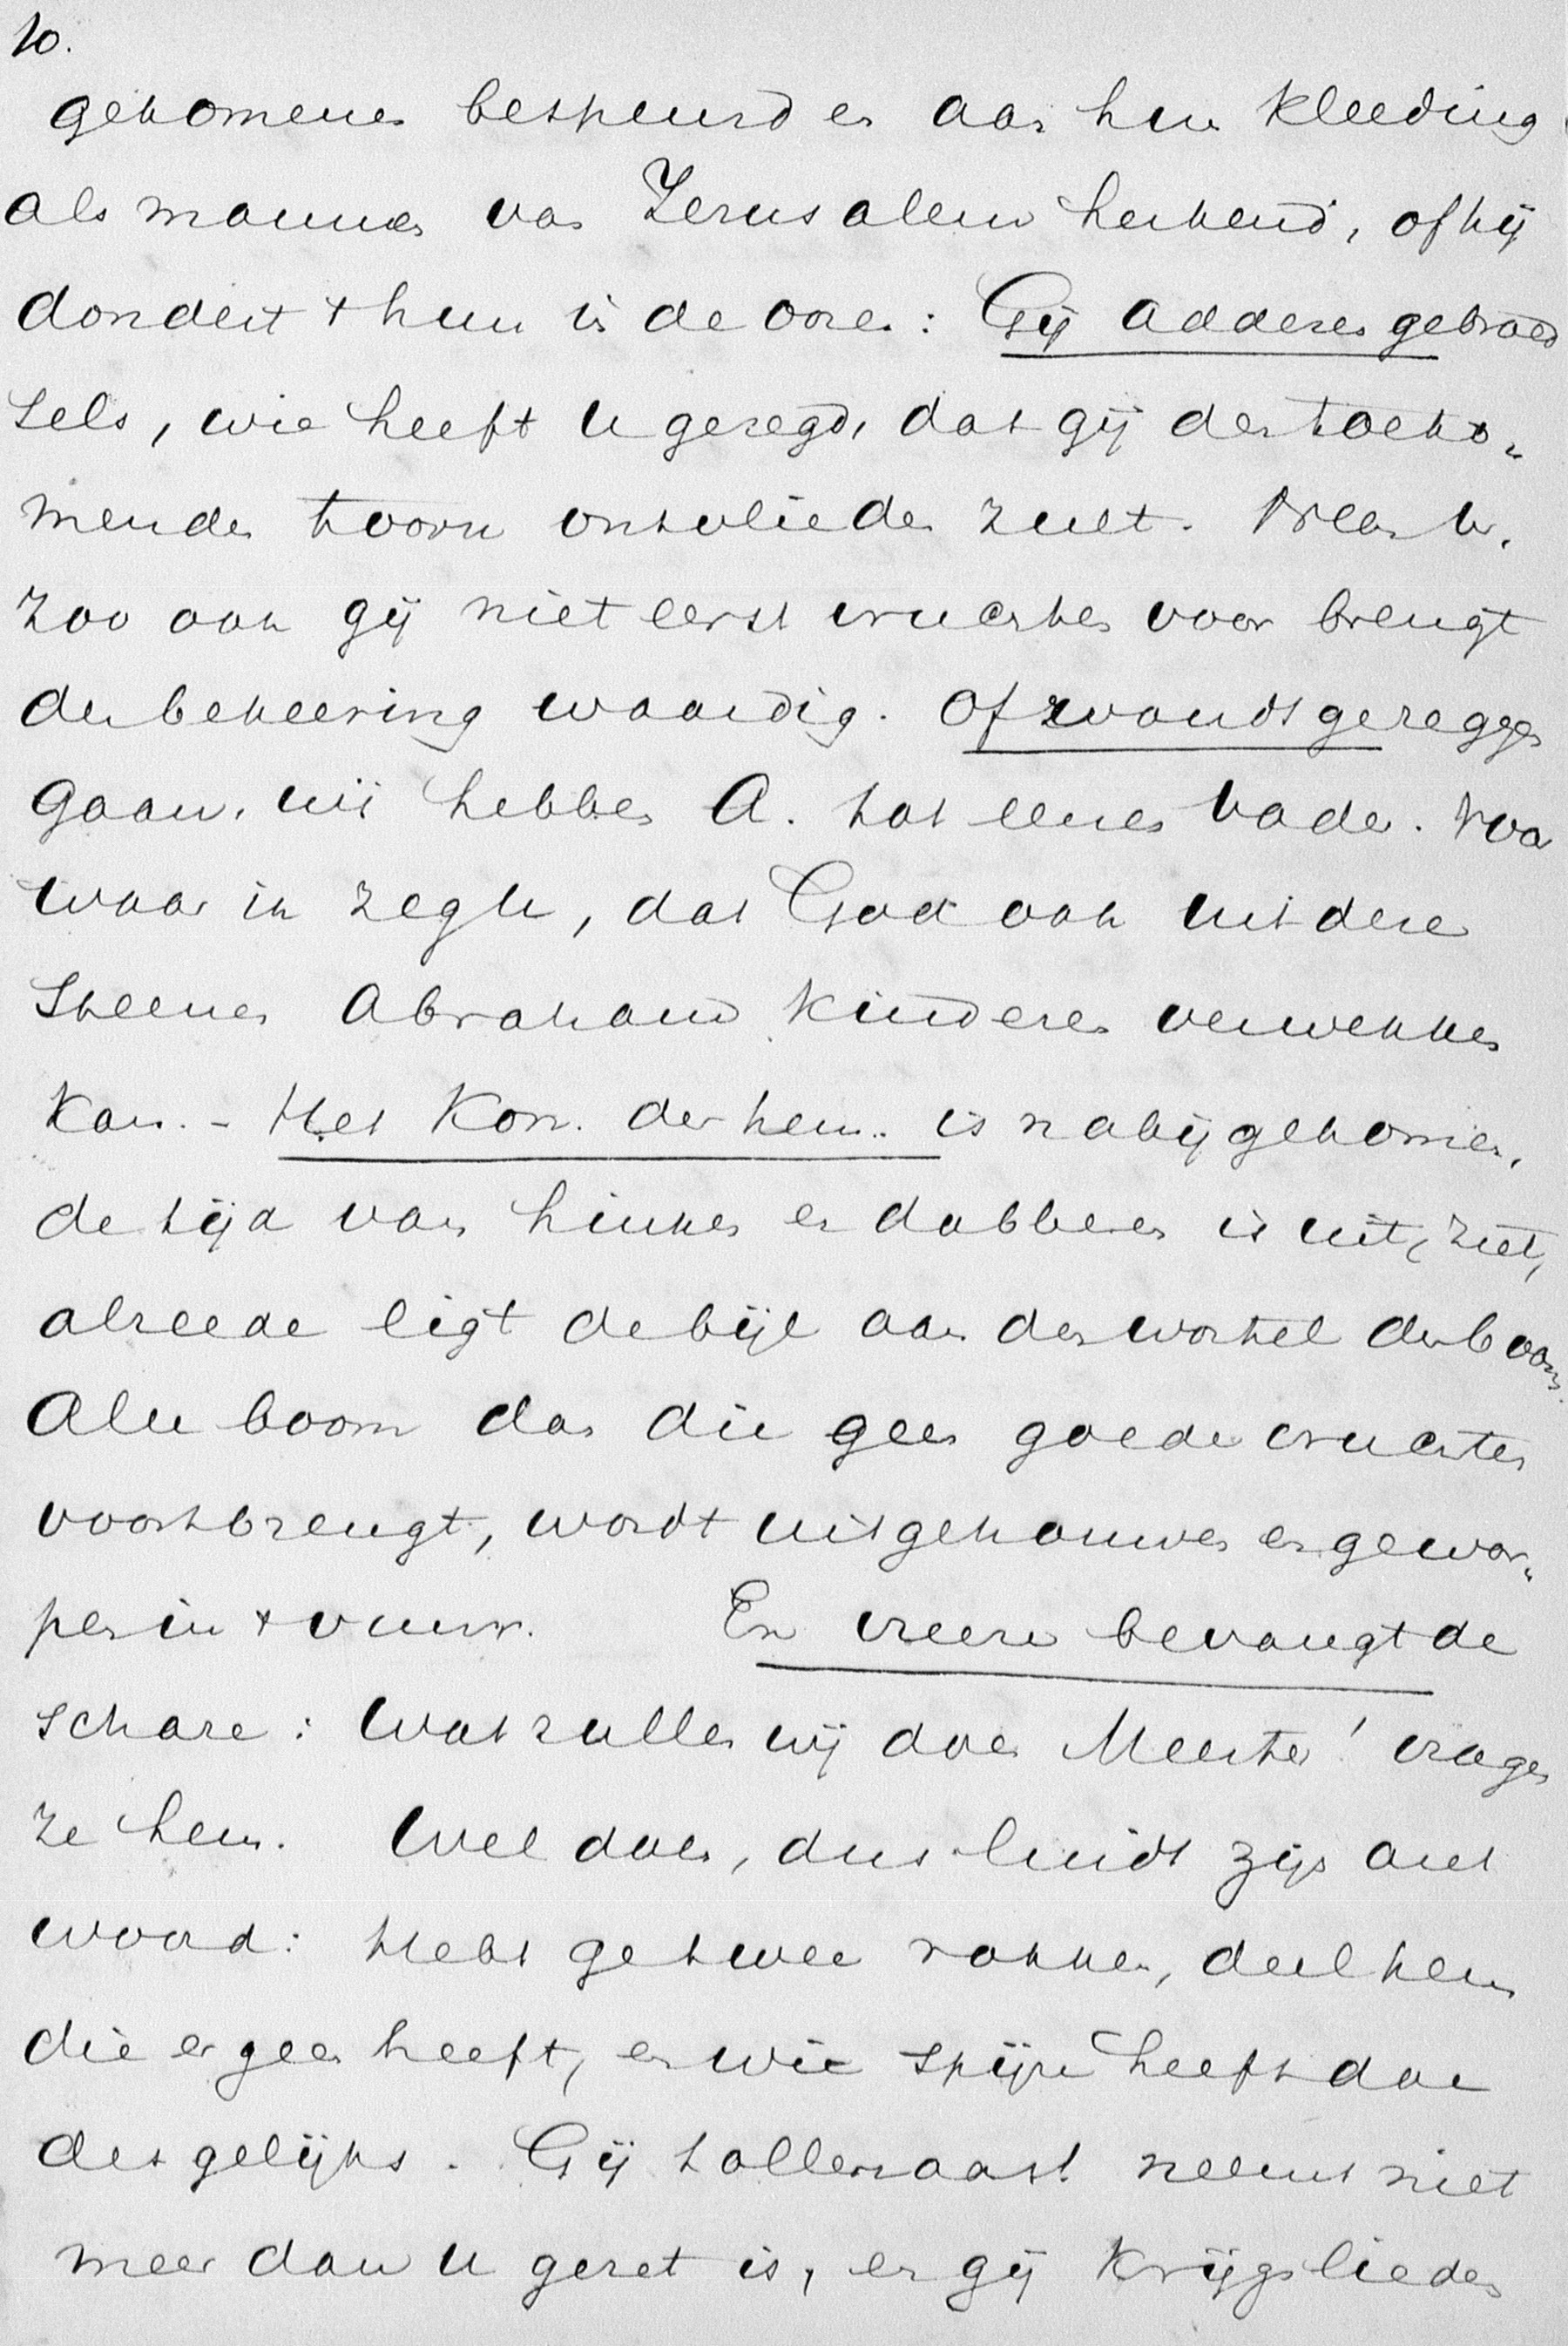 10.
gekomenen bespeurd en aan hun kleeding
als mannen van Jerusalem herkend, of hij
dondert 't hun in de ooren: Gij adderen gebroed
sels, wie heeft u gezegd, dat gij den toeko„
menden toorn ontvlieden zult.
Zoo ook gij niet eerst vruchten voor brengt
der bekeering waardig. Of zoudt ge zeggen
gaan, wij hebben A. tot eenen Vader. Voor
waar ik zegh u, dat God ook uit deze
steenen Abraham kinderen verwekken
kan. - Het Kon. der hem. is nabij gekomen,
de tijd van hinken en dobberen is uit, ziet,
alreede ligt de bijl aan den wortel der boom
Alle boom dan die geen goede vruchten
voortbrengt, wordt uitgehouwen en gewor„
pen in 't vuur. En vreeze bevangt de
schare: Wat zullen wij doen Meester! vragen
ze hem. Wel doen, dus luidt zijn ant
woord: Hebt ge twee rokken, deel hem
die er geen heeft, en wie spijze heeft doe
desgelijks. Gij tollenaars! neemt niet
meer dan u gezet is, en gij krijgslieden